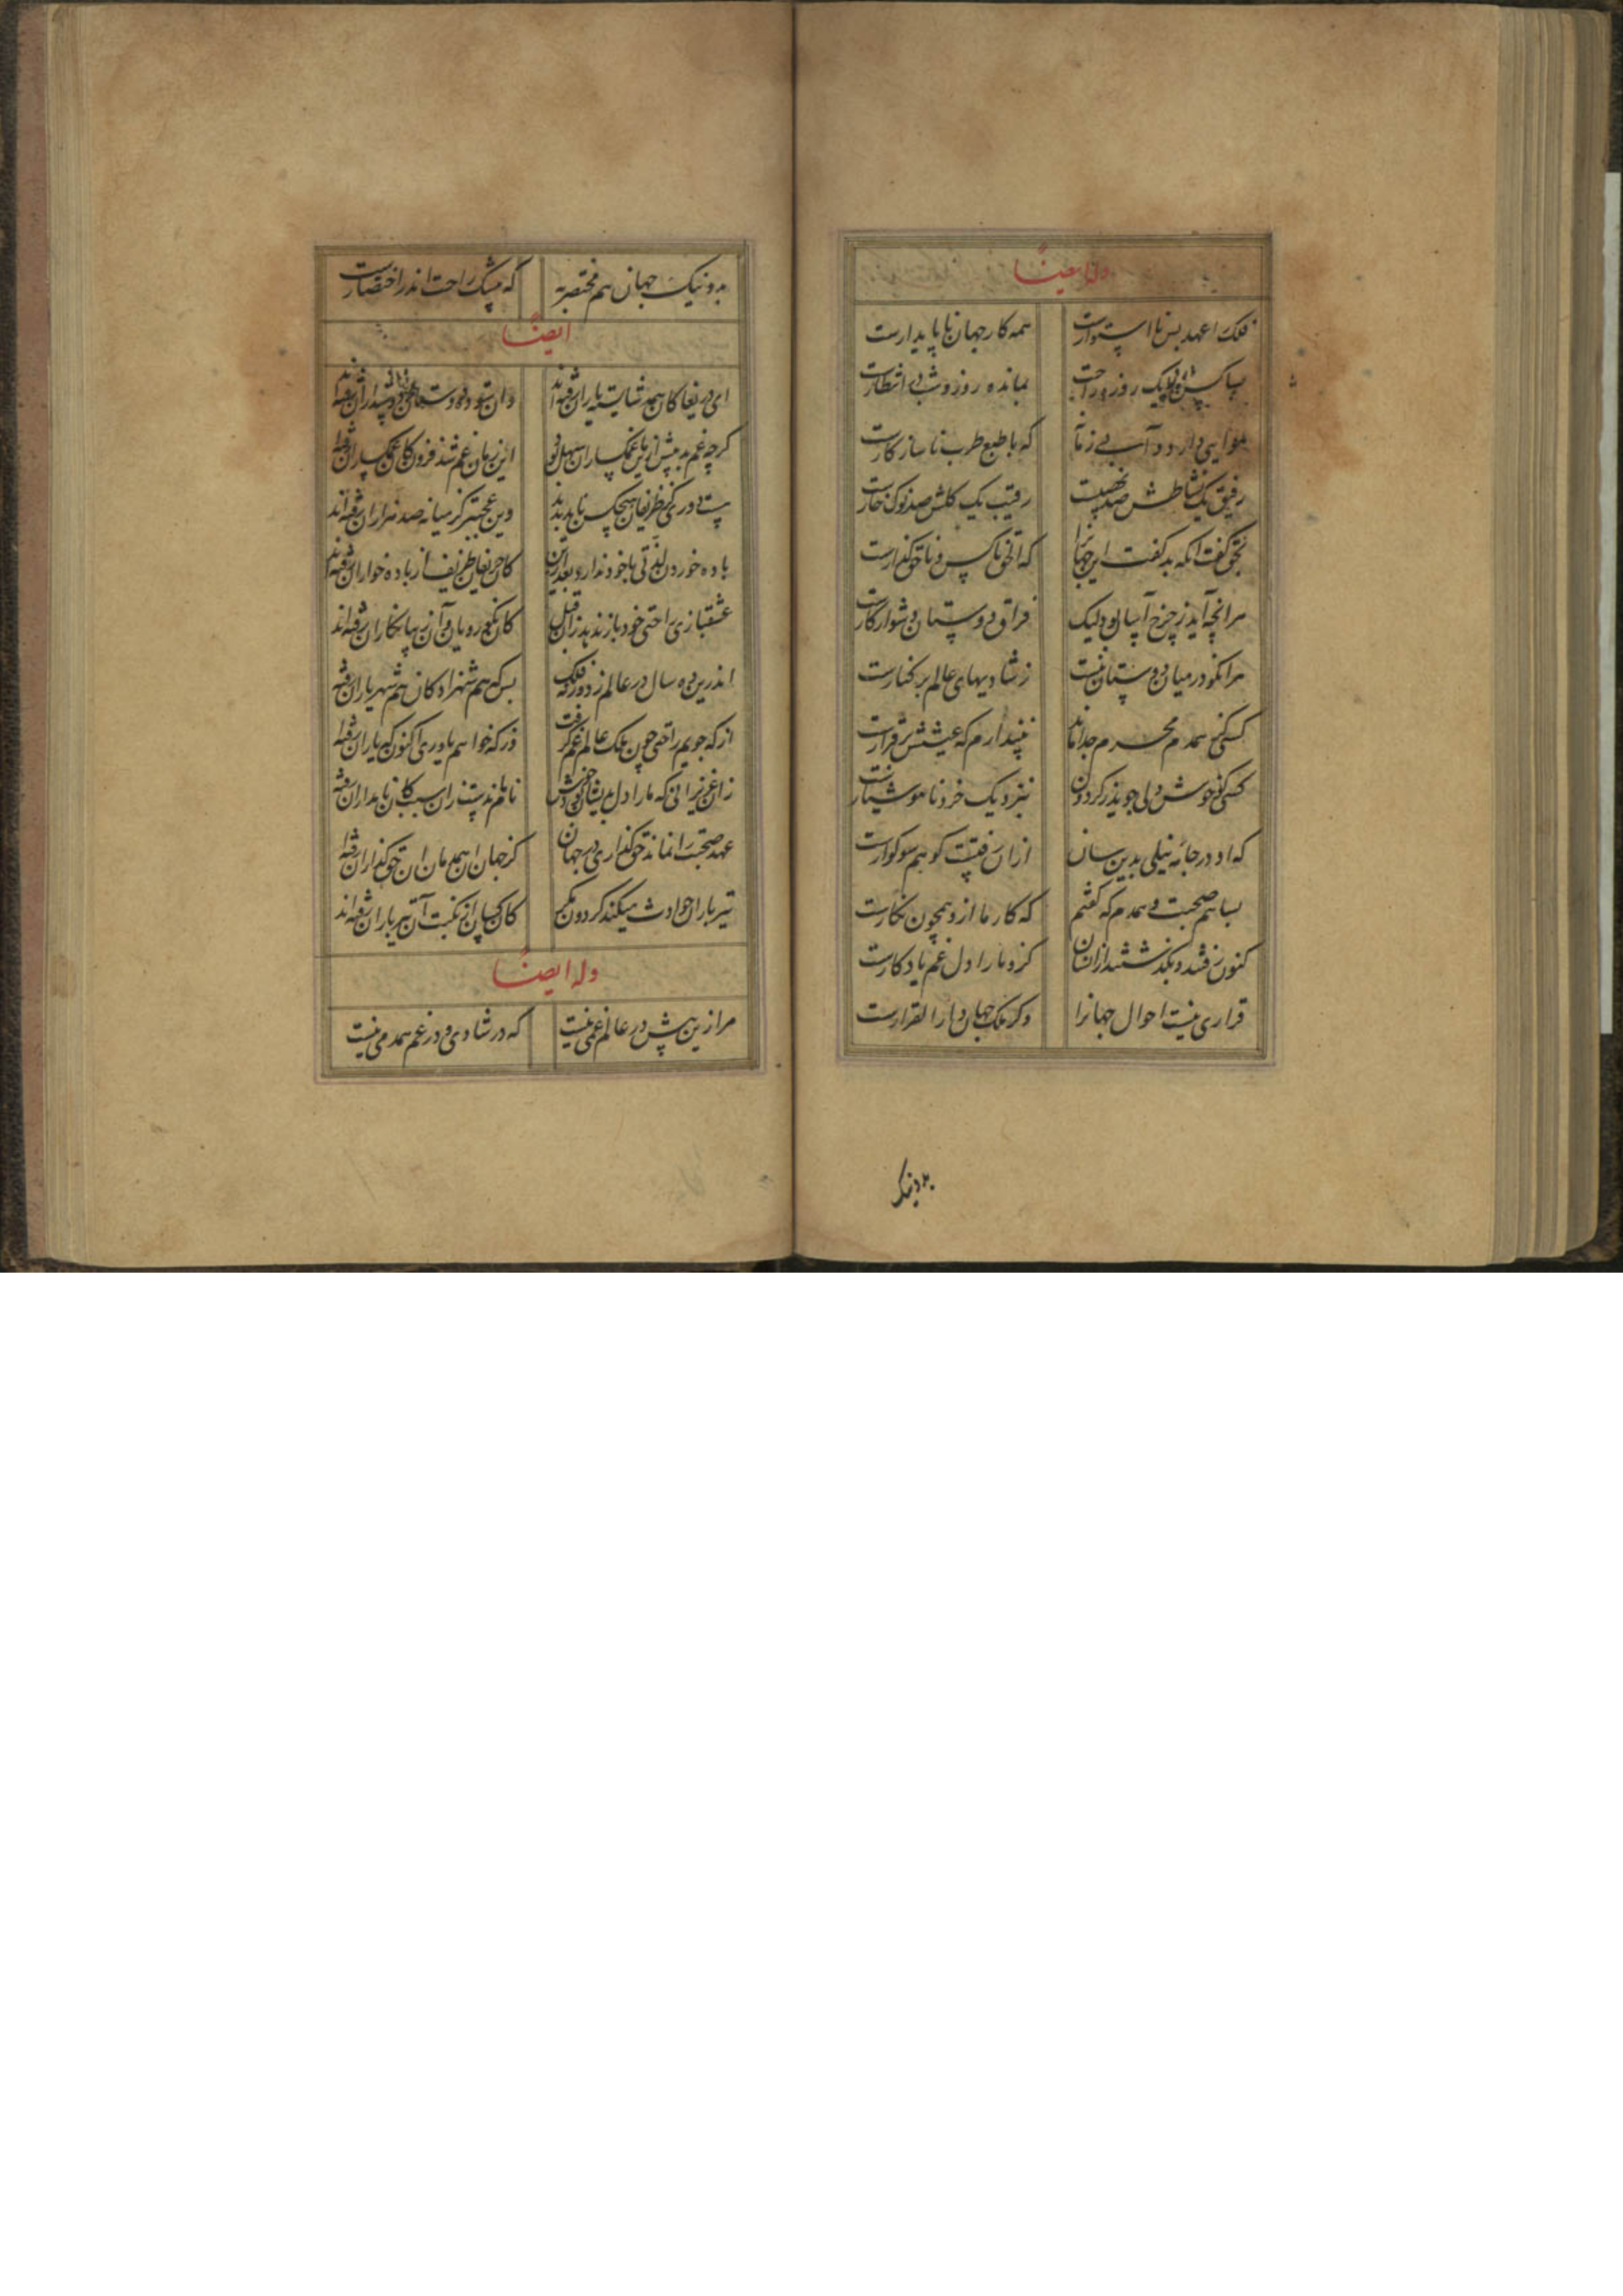 وله ایضاً
فلک را عهد بس نا استوارست همه کار جهان ناپایدارست
بسا کس کو یک روزه راحت بمانده روز و شب در انتظارست
هوایی دارد و آبی که با طبع طرب ناسازکارست
رفیق یک نشاطش صد نهیبست رقیب یک کلش صد نوک خارست
بحق گفت انکه بد گفت این جهانرا که الحق ناکس و ناحق گذارست
مرا نچه آید ز چرخ آسان بود لیک فراق دوستان دشوار کارست
مرا نکو در میان دوستان نیست ز شادیهای عالم بر کنارست
کسی کز همدم و محرم جدا ماند نپندارم که عیشش برقرارست
کسی کو خوش دلی جوید ز کردون بنزدیک خرد ناهوشیارست
که او در جامه نیلی بدین سان ازان رفتست کو هم سوکوارست
بسا هم صحبت و همدم که گفتم که کار ما ازو همچون نگارست
کنون رفتند و بگذشتند ازانسان کزو ما را دل غم یادکارست
قراری نیست احوال جهانرا وگر ملک جهان دار القرارست
بد و نیک
بد و نیک جهان هم مختصر به که بیشک راحت اندر اختصارست
ایضاً
ای دریغا کان همه شایسته یاران رفته‌اند وان ستوده دوستان
گرچه غم به پیش ازین با غمکساران سهل بود این زمان غم شد فزون کان غمکساران رفته‌اند
نیست دوری کز ظریفان هیچکس ناید پدید وین عجبتر کز میانه صد هزاران رفته‌اند
باده خوردن لذتی با خود ندارد بعد ازین کان حریفان ظریف از باده خواران رفته‌اند
عشقبازی راحتی خود باز ندهد زان قبل کان نکو رویان و آن زیبا نگاران رفته‌اند
اندرین ده سال در عالم ز دور فلک بس که هم شهزادکان هم شهریاران رفته‌اند
از که جویم راحتی چون ملک عالم غم گرفت وز که خواهم یاوری اکنون که یاران رفته‌اند
زان عزیزانی که ما را دل بدیشان بود خوش نام ماندست زان سبب کان نامداران رفته‌اند
عهد صحبت را نماند حق گذاری در جهان کز جهان آن همدمان آن حق گذاران رفته‌اند
تیر باران حوادث میکند کردون مگر کان کسان از نکبت آن تیر باران رفته‌اند
وله ایضاً
مرا زین بیش در عالم غمی نیست که در شادی و در غم همدمی نیست